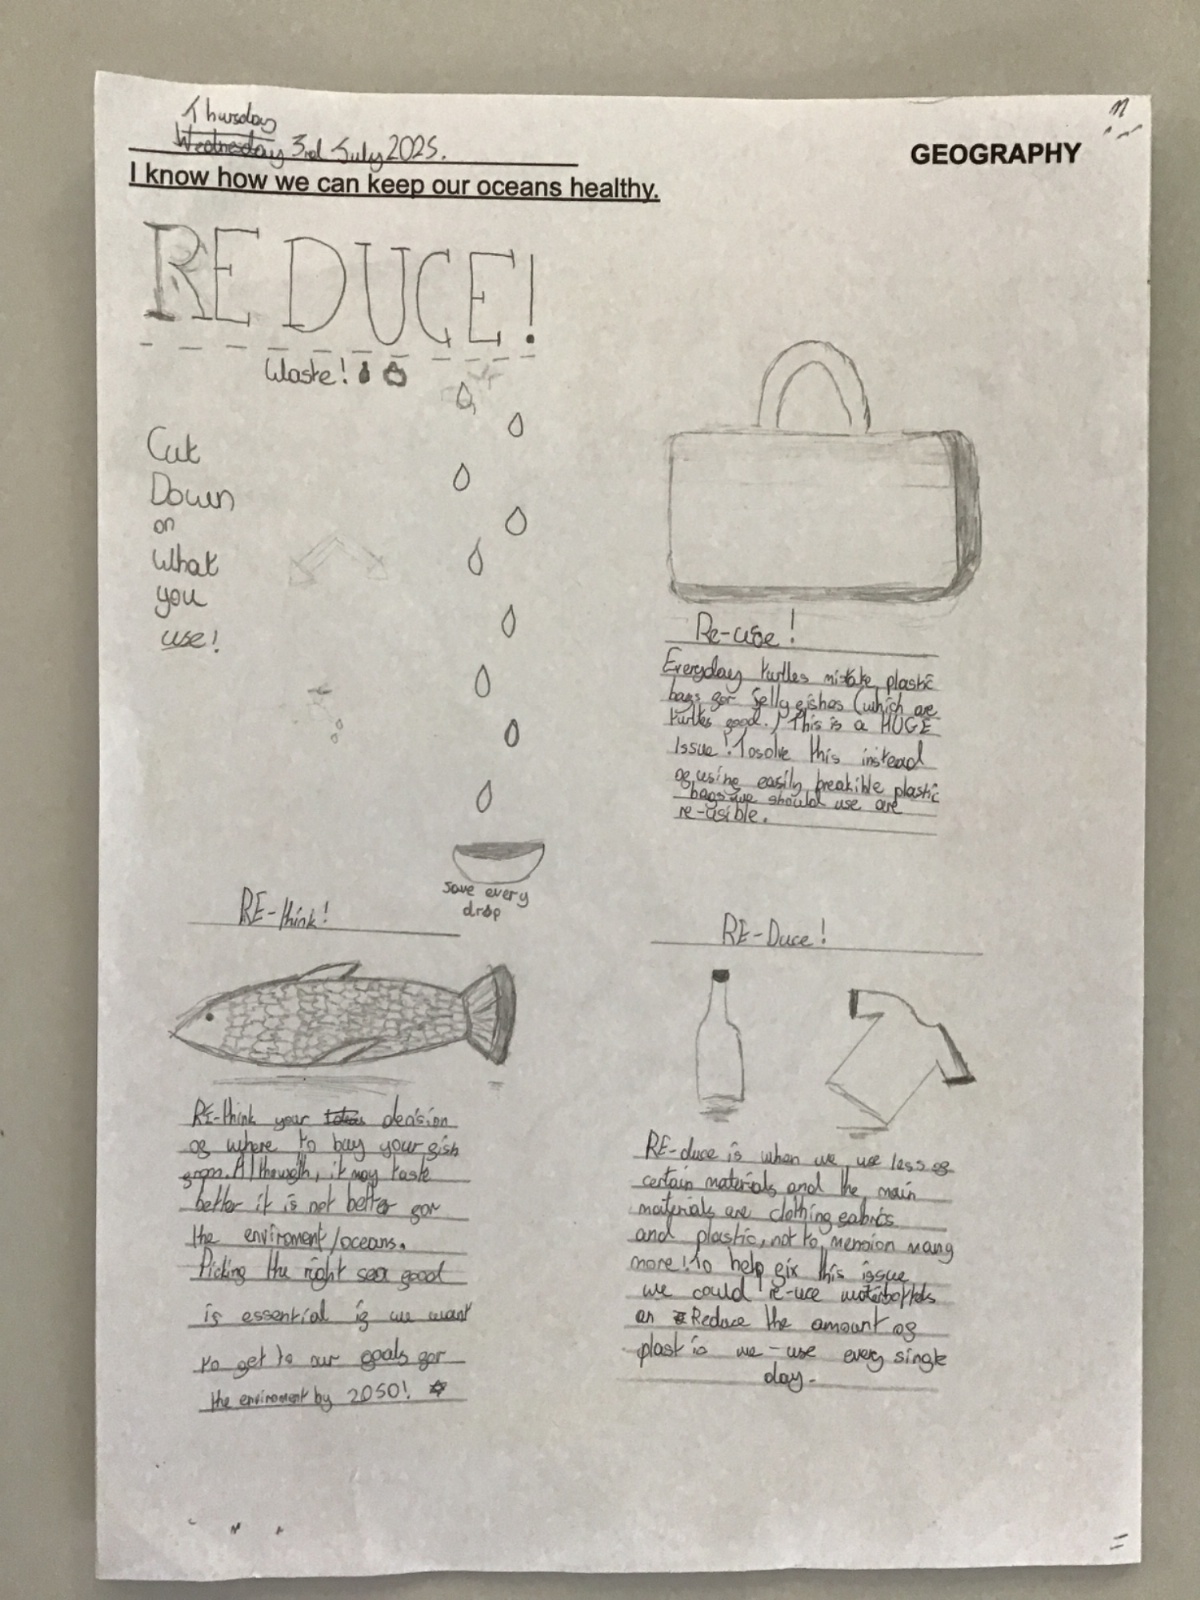 Thursday
Wednesday 3rd July 2025.
GEOGRAPHY
I know how we can keep our oceans healthy.
REDUCE!
Waste!
Cut
Down
on
What
you
use!
save every
drop
Re-use!
Everyday turtles mistake plastic
bags for jellyfishes (which are
turtles food.) This is a HUGE
issue! To solve this instead
of using easily breakible plastic
bags we should use are
re-usible.
RE-think!
RE-think your decision
of where to buy your fish
from. Although, it may taste
better it is not better for
the enviroment/oceans.
Picking the right sea food
is essential if we want
to get to our goals for
the enviroment by 2050!
RE-Duce!
RE-duce is when we use less of
certain materials and the main
materials are clothing fabrics
and plastic, not to mension many
more! To help fix this issue
we could re-uce waterbottels
or Reduce the amount of
plastic we-use every single
day.